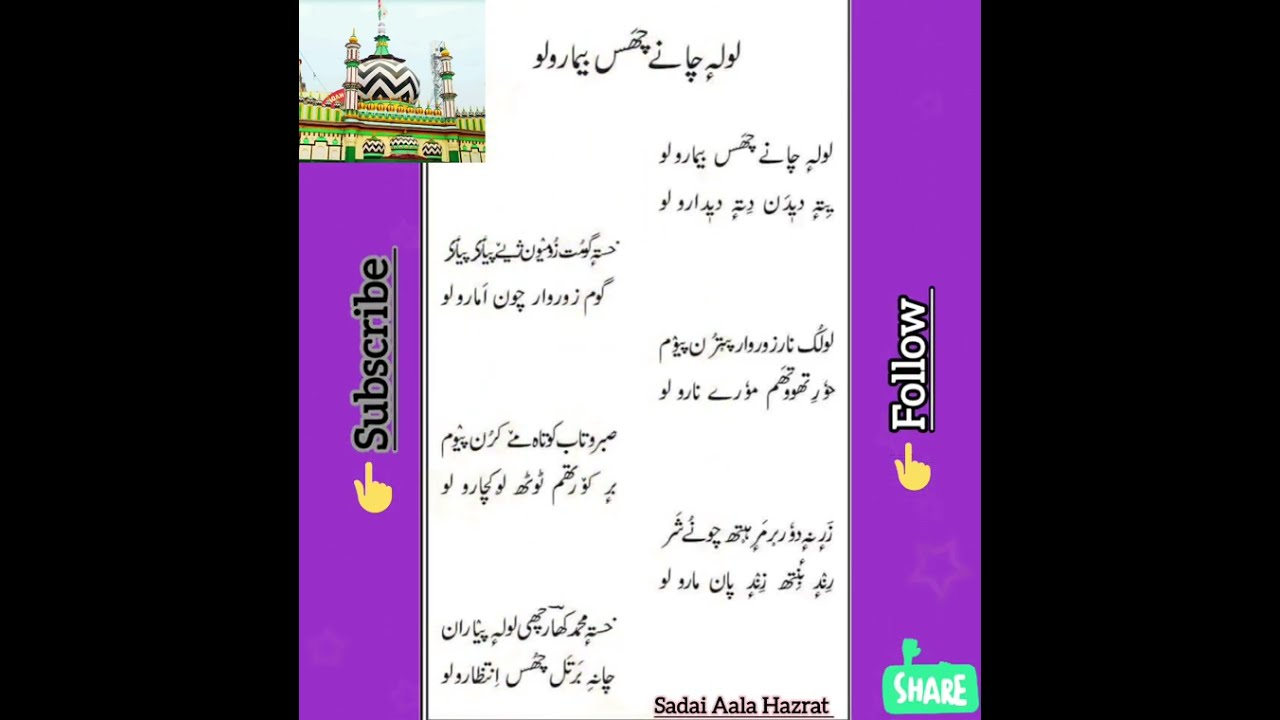 لولہٕ چانے چھَس بیمارو لو
لولہٕ چانے چھَس بیمارو لو
یِتہٕ دیدَن دِتہٕ دیدارو لو
خستہٕ گومُت زومیون ژےٚ پیٲکۍ پیٲکۍ
گوم زوروار چون اَمارو لو
لولُک نار زوروار پرٛزلُن پیوٚم
ووٚتھم مورے نارو لو
صبر و تاب کوتاہ مےٚ کرُن پیوٚم
برٕ کوٚرتھم ٹوٹھ لوکچارو لو
زَرٕ نہٕ دوٗرِیر مَرٕ ہیتھ چونُے شَر
رِندٕ بٔنِتھ زِندٕ پان مارو لو
خستہٕ محمد کھار چھی لولہٕ پیاران
چانہِ بَرتَل چھُس اِنتظارو لو
Subscribe
Follow
SHARE
Sadai Aala Hazrat